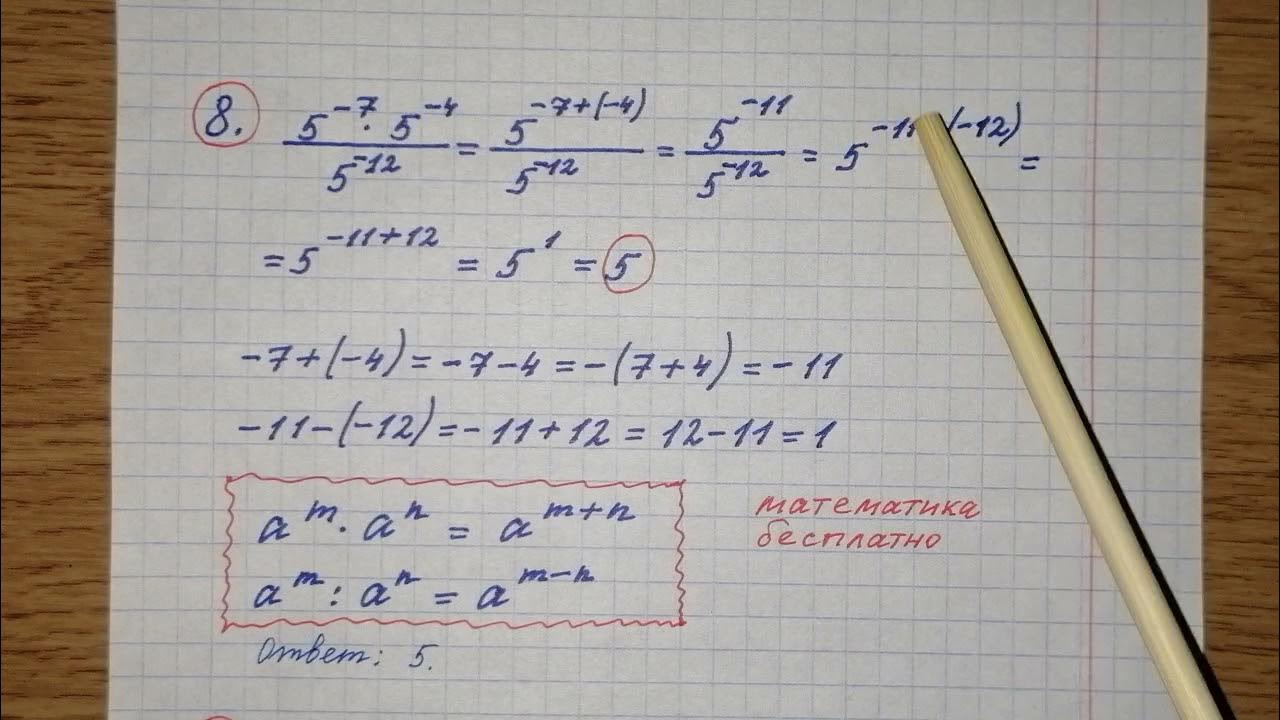 8. (5^-7 · 5^-4)/5^-12 = 5^(-7+(-4))/5^-12 = 5^-11/5^-12 = 5^(-11 (-12)) =
= 5^(-11+12) = 5^1 = 5
-7+(-4)=-7-4=-(7+4)=-11
-11-(-12)=-11+12=12-11=1
a^m · a^n = a^(m+n)
a^m : a^n = a^(m-n)
математика
бесплатно
Ответ: 5.